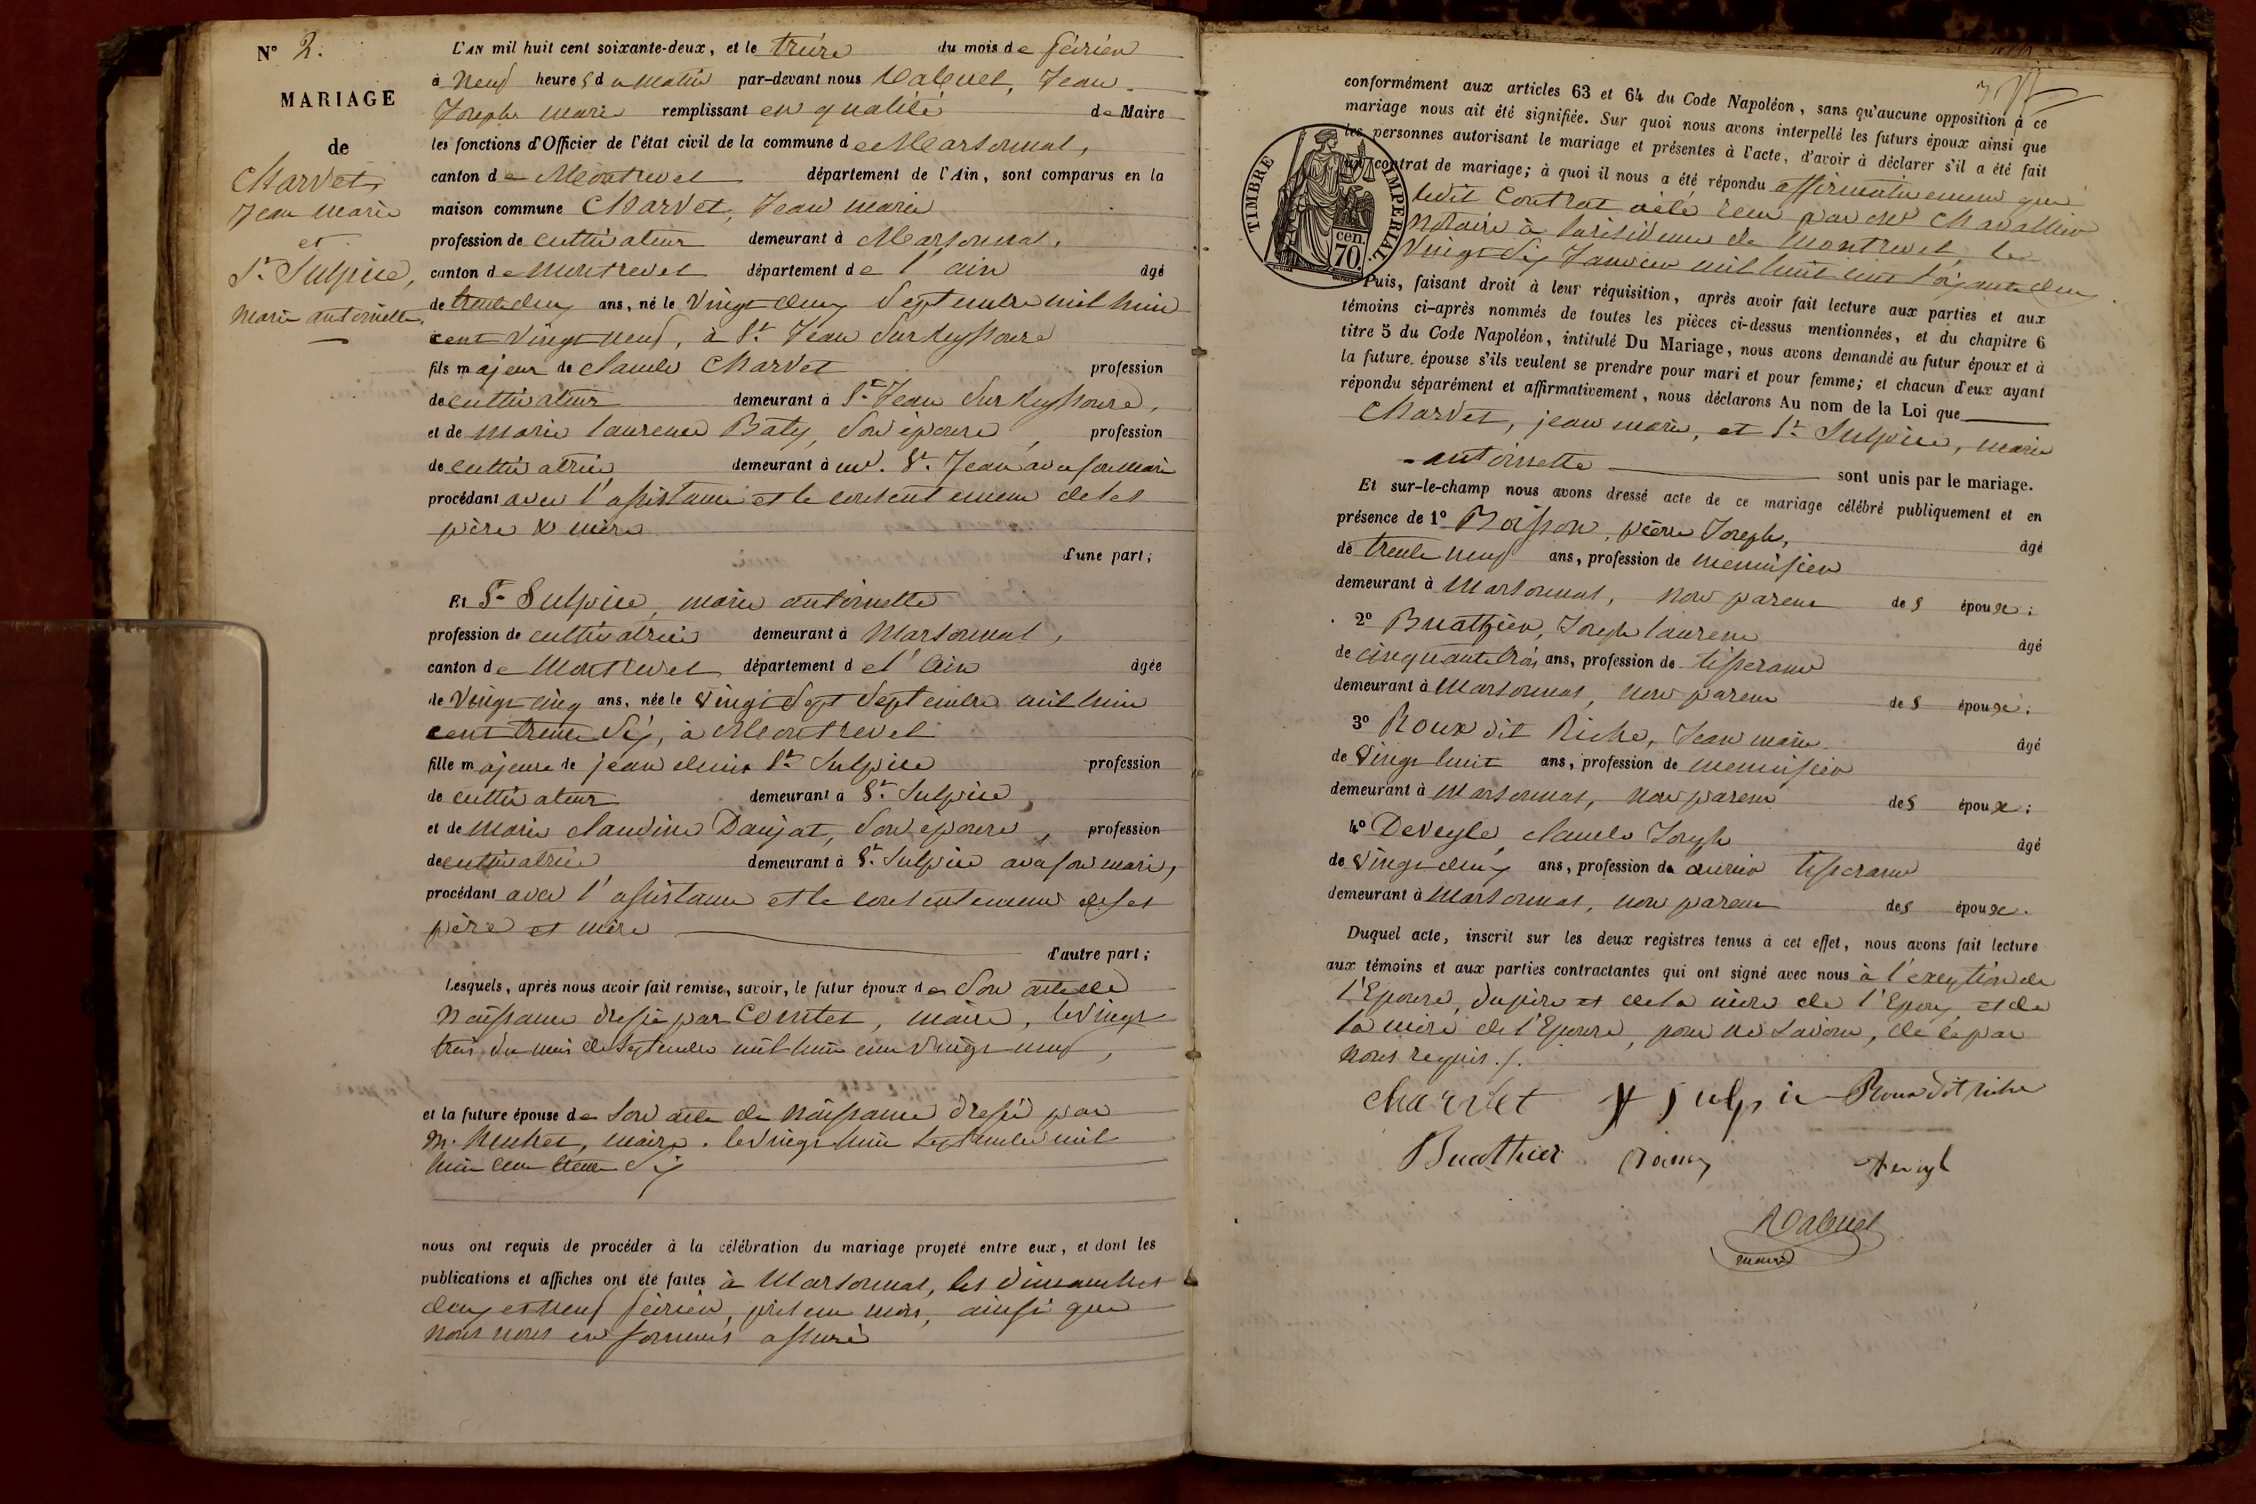 N° 2.
MARIAGE
de
Charvet,
Jean Marie
et
St Sulpice,
Marie antoinette
L'AN mil huit cent soixante-deux, et le treize du mois de février
à Neuf heures du matin par-devant nous Jean
Joseph Marie remplissant en qualité de Maire
les fonctions d'Officier de l'état civil de la commune de Marsonnas,
canton de Montrevel département de l'Ain, sont comparus en la
maison commune Charvet, Jean Marie
profession de cultivateur demeurant à Marsonnas,
canton de Montrevel département de l'ain âgé
de trente deux ans, né le vingt deux Septembre mil huit
cent vingt neuf, à St Jean Sur Reyssouze
fils majeur de claude Charvet profession
de cultivateur demeurant à St Jean Sur Reyssouze,
et de marie laurence Baty, Son épouse, profession
de cultivatrice demeurant à St Jean avec son mari
procédant avec l'assistance et le consentement de ses
père & mère
d'une part;
Et St Sulpice, marie antoinette
profession de cultivatrice demeurant à Marsonnas,
canton de Montrevel département de l'ain âgée
de Vingt cinq ans, née le Vingt Sept Septembre mil huit
cent trente Six, à Montrevel
fille majeure de jean denis St Sulpice profession
de cultivateur demeurant à St Sulpice,
et de Marie claudine Daujat, Son épouse, profession
de cultivatrice demeurant à St Sulpice avec son mari,
procédant avec l'assistance et le consentement de ses
père et mère
d'autre part;
Lesquels, après nous avoir fait remise, savoir, le futur époux de Son acte de
Naissance dressé par Comtet, maire, le vingt
trois du mois de Septembre mil huit cent vingt neuf,
et la future épouse de Son acte de Naissance dressé par
M. maire, le vingt huit Septembre mil
huit cent trente Six
nous ont requis de procéder à la célébration du mariage projeté entre eux, et dont les
publications et affiches ont été faites à Marsonnas, les dimanches
deux et neuf février, présent mois, ainsi que
nous nous en sommes assuré
conformément aux articles 63 et 64 du Code Napoléon, sans qu'aucune opposition à ce
mariage nous ait été signifiée. Sur quoi nous avons interpellé les futurs époux ainsi que
les personnes autorisant le mariage et présentes à l'acte, d'avoir à déclarer s'il a été fait
un contrat de mariage; à quoi il nous a été répondu affirmativement que
ledit Contrat a été reçu par
Notaire à la résidence de Montrevel, le
Vingt Six Janvier mil huit cent soixante deux.
TIMBRE IMPERIAL
70 cen.
Puis, faisant droit à leur réquisition, après avoir fait lecture aux parties et aux
témoins ci-après nommés de toutes les pièces ci-dessus mentionnées, et du chapitre 6
titre 5 du Code Napoléon, intitulé Du Mariage, nous avons demandé au futur époux et à
la future épouse s'ils veulent se prendre pour mari et pour femme; et chacun d'eux ayant
répondu séparément et affirmativement, nous déclarons Au nom de la Loi que
Charvet, jean marie, et St Sulpice, marie
antoinette sont unis par le mariage.
Et sur-le-champ nous avons dressé acte de ce mariage célébré publiquement et en
présence de 1° Boisson, pierre Joseph, âgé
de trente neuf ans, profession de menuisier
demeurant à Marsonnas, non parent des époux;
2° Buathier, Joseph laurent âgé
de cinquante trois ans, profession de tisserand
demeurant à Marsonnas, non parent des époux;
3° Roux dit Riche, Jean marie âgé
de Vingt huit ans, profession de menuisier
demeurant à Marsonnas, non parent des époux;
4° Deveyle, claude Joseph âgé
de Vingt deux ans, profession de tisserand
demeurant à Marsonnas, non parent des époux.
Duquel acte, inscrit sur les deux registres tenus à cet effet, nous avons fait lecture
aux témoins et aux parties contractantes qui ont signé avec nous à l'exeption de
l'Epouse, du père et de la mère de l'Epoux et de
la mère de l'Epouse, pour ne Savoir, de ce par
nous requis.
Charvet St Sulpice Roux dit riche
Buathier
maire